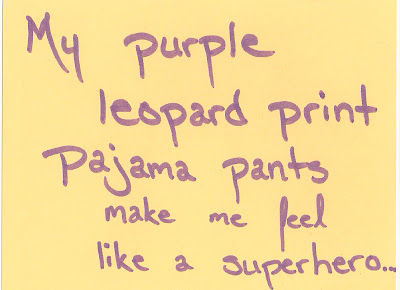 My purple
leopard print
Pajama pants
make me feel
like a superhero...